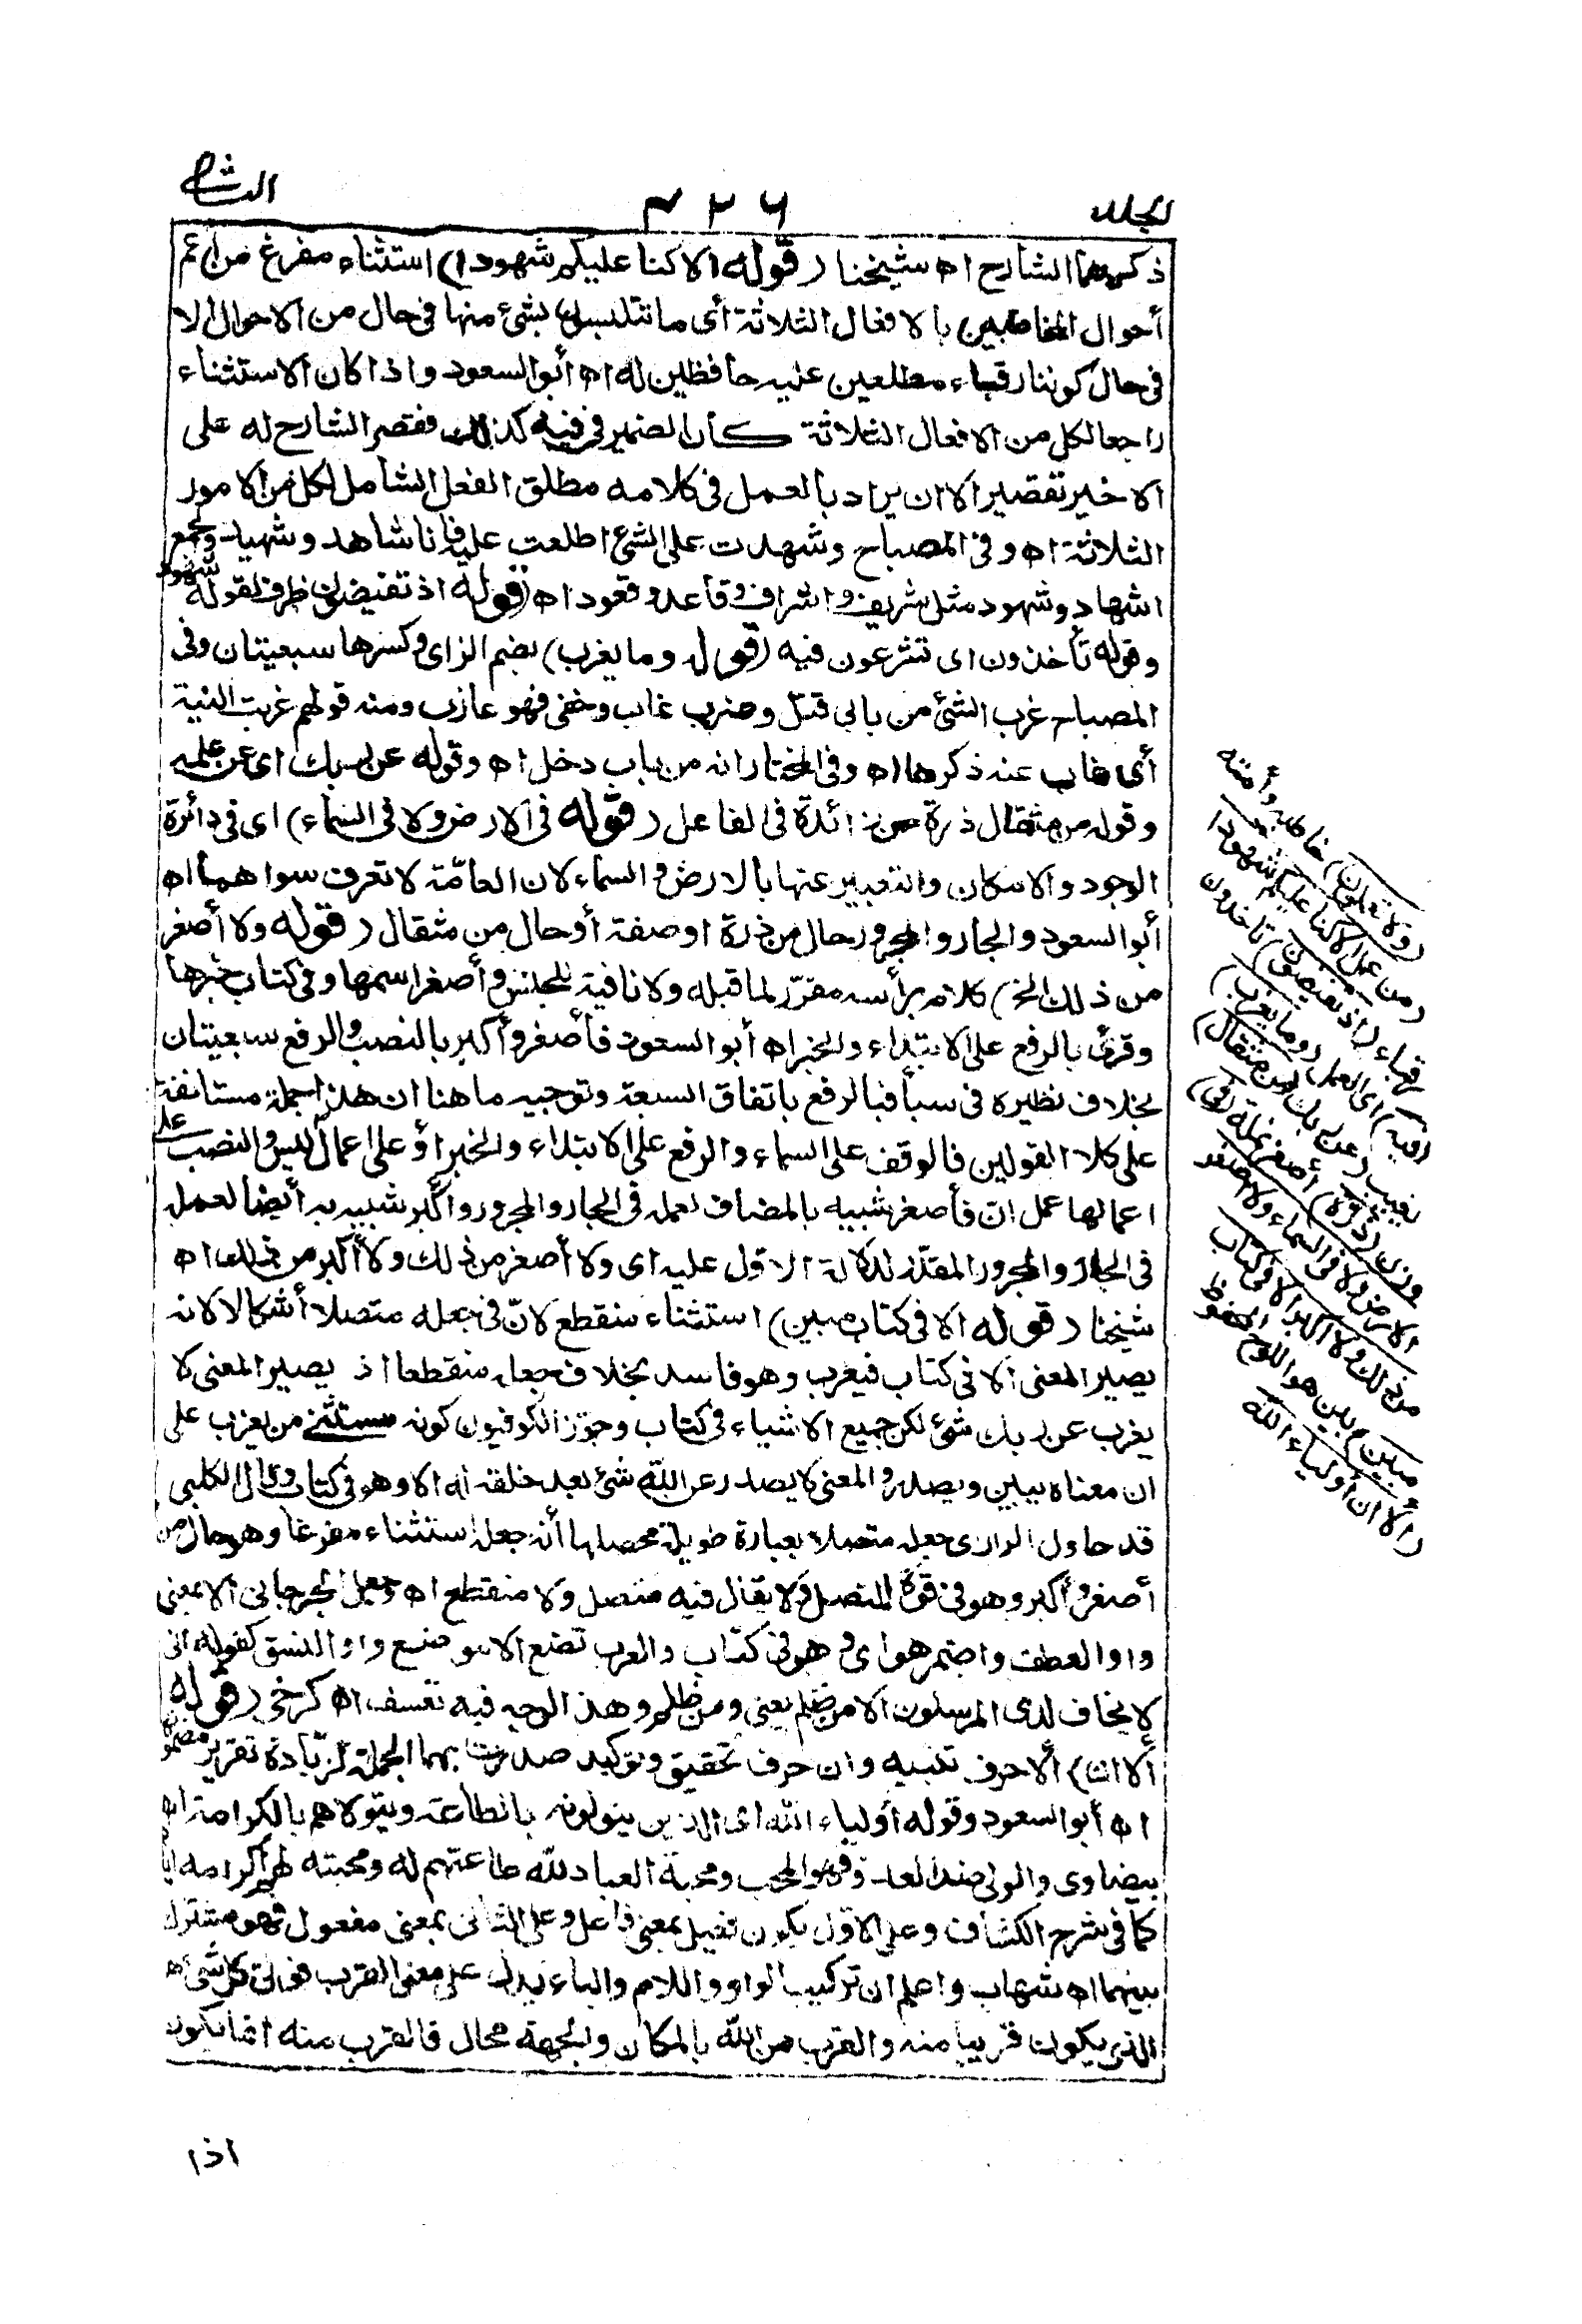 المجلد ٣٢٦ الثانى
ذكرهما الشارح اه شيخنا (قوله الا كنا عليكم شهودا) استثناء مفرغ من أعم
أحوال المخاطبين بالافعال الثلاثة أى ما تتلبسون بشئ منها فى حال من الاحوال الا
فى حال كوننا رقباء مطلعين عليه حافظين له اه أبو السعود واذا كان الاستثناء
راجعا لكل من الافعال الثلاثة كأن الضمير فى فيه كذلك فقصر الشارح له على
الاخير تقصير الا ان يراد بالعمل فى كلامه مطلق الفعل الشامل لكل من الامور
الثلاثة اه وفى المصباح وشهدت على الشئ اطلعت عليه فانا شاهد وشهيد والجمع
اشهاد وشهود مثل شريف واشراف وقاعد وقعود اه (قوله اذ تفيضون) ظرف لقوله شهودا
وقوله تأخذون اى تشرعون فيه (قوله وما يعزب) بضم الزاى وكسرها سبعيتان وفى
المصباح عزب الشئ من بابى قتل وضرب غاب وخفى فهو عازب ومنه قولهم عزبت النية
أى غاب عنه ذكرها اه وفى المختار انه من باب دخل اه وقوله عن ربك اى عن علمه
وقوله من مثقال ذرة من زائدة فى الفاعل (قوله فى الارض ولا فى السماء) اى فى دائرة
الوجود والامكان والتعبير عنها بالارض والسماء لان العامّة لا تعرف سواهما اه
أبو السعود والجار والمجرور حال من ذرة او صفة أو حال من مثقال (قوله ولا أصغر
من ذلك الخ) كلام برأسه مقرّر لما قبله ولا نافية للجنس وأصغر اسمها وفى كتاب خبرها
وقرئ بالرفع على الابتداء والخبر اه أبو السعود فأصغر وأكبر بالنصب والرفع سبعيتان
بخلاف نظيره فى سبأ فبالرفع باتفاق السبعة وتوجيه ما هنا ان هذه الجملة مستانفة
على كلا القولين فالوقف على السماء والرفع على الابتداء والخبر أو على اعمال ليس والنصب على
اعمالها عمل انّ فأصغر شبيه بالمضاف لعمله فى الجار والمجرور وأكبر شبيه به أيضا لعمله
فى الجار والمجرور المقدّر لدلالة الاوّل عليه اى ولا أصغر من ذلك ولا أكبر من ذلك اه
شيخنا (قوله الا فى كتاب مبين) استثناء منقطع لانّ فى جعله متصلا أشكالا لانه
يصير المعنى الا فى كتاب فيعزب وهو فاسد بخلاف جعله منقطعا اذ يصير المعنى لا
يعزب عن ربك شئ لكن جميع الاشياء فى كتاب وجوّز الكوفيون كونه مستثنى من يعزب على
ان معناه يبين ويصدر والمعنى لا يصدر عن الله شئ بعد خلقه له الا وهو فى كتاب وقال الكلبى
قد حاول الرازى جعله متصلا بعبارة طويلة محصلها أنه جعله استثناء مفرغا وهو حال من
أصغر وأكبر وهو فى قوّة المتصل ولا يقال فيه متصل ولا منقطع اه وجعل الجرجانى الا بمعنى
واو العطف واضمر هو اى وهو فى كتاب والعرب تضع الا موضع واو النسق كقوله انى
لا يخاف لدى المرسلون الا من ظلم يعنى ومن ظلم وهذا الوجه فيه تعسف اه كرخى (قوله
ألا ان) ألا حرف تنبيه وان حرف تحقيق وتوكيد صدرت بهما الجملة لزيادة تقرير مضمونها
اه أبو السعود وقوله أولياء الله اى الذين يتولونه بالطاعة ويتولاهم بالكرامة اه
بيضاوى والولى ضد العدو فهو المحب ومحبة العباد لله طاعتهم له ومحبته لهم اكرامه اياهم
كما فى شرح الكشاف وعلى الاوّل يكون فعيل بمعنى فاعل وعلى الثانى بمعنى مفعول فهو مشترك
بينهما اه شهاب واعلم ان تركيب الواو واللام والياء يدل على معنى القرب فولى كل شئ هو
الذى يكون قريبا منه والقرب من الله بالمكان والجهة محال فالقرب منه انما يكون
اذا
(ولا تعملون) خاطبه وأمته
(من عمل الا كنا عليكم شهودا)
رقباء (اذ تفيضون) تأخذون
(فيه) اى العمل (وما يعزب)
يغيب (عن ربك من مثقال)
وزن (ذرة) أصغر نملة (فى
الارض ولا فى السماء ولا أصغر
من ذلك ولا اكبر الا فى كتاب
مبين) بين هو اللوح المحفوظ
(ألا ان أولياء الله